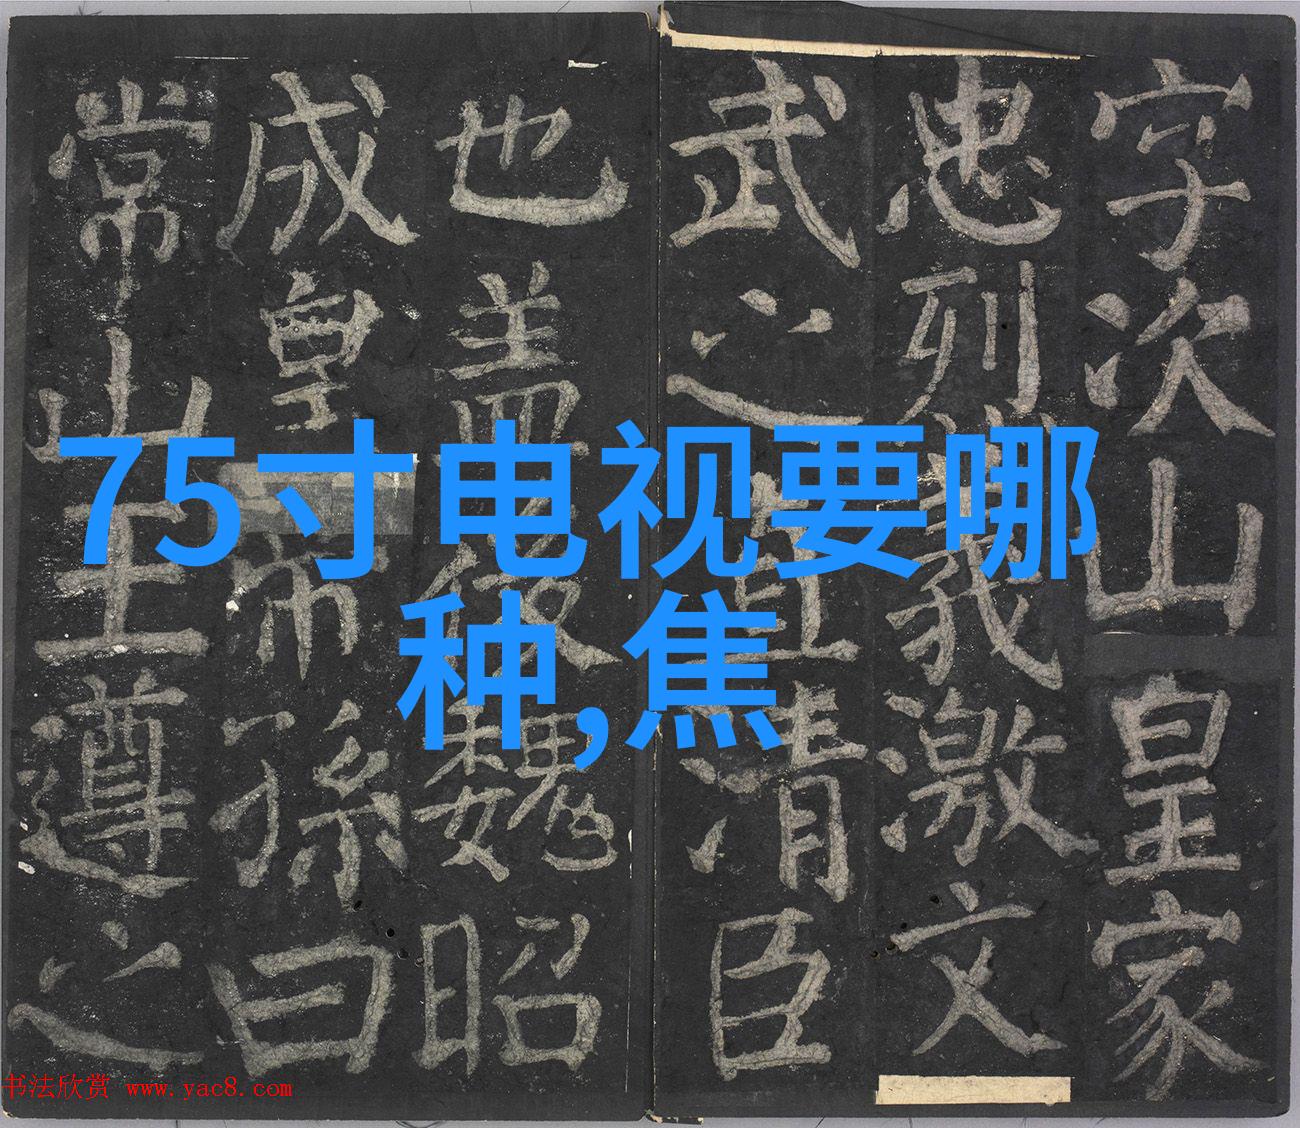 字次山皇家
忠烈義激文
武之直清臣
也盖後魏昭
成皇帝孫曰
常山王遵之
75寸电视要哪
种,焦
书法欣赏 www.yac8.com